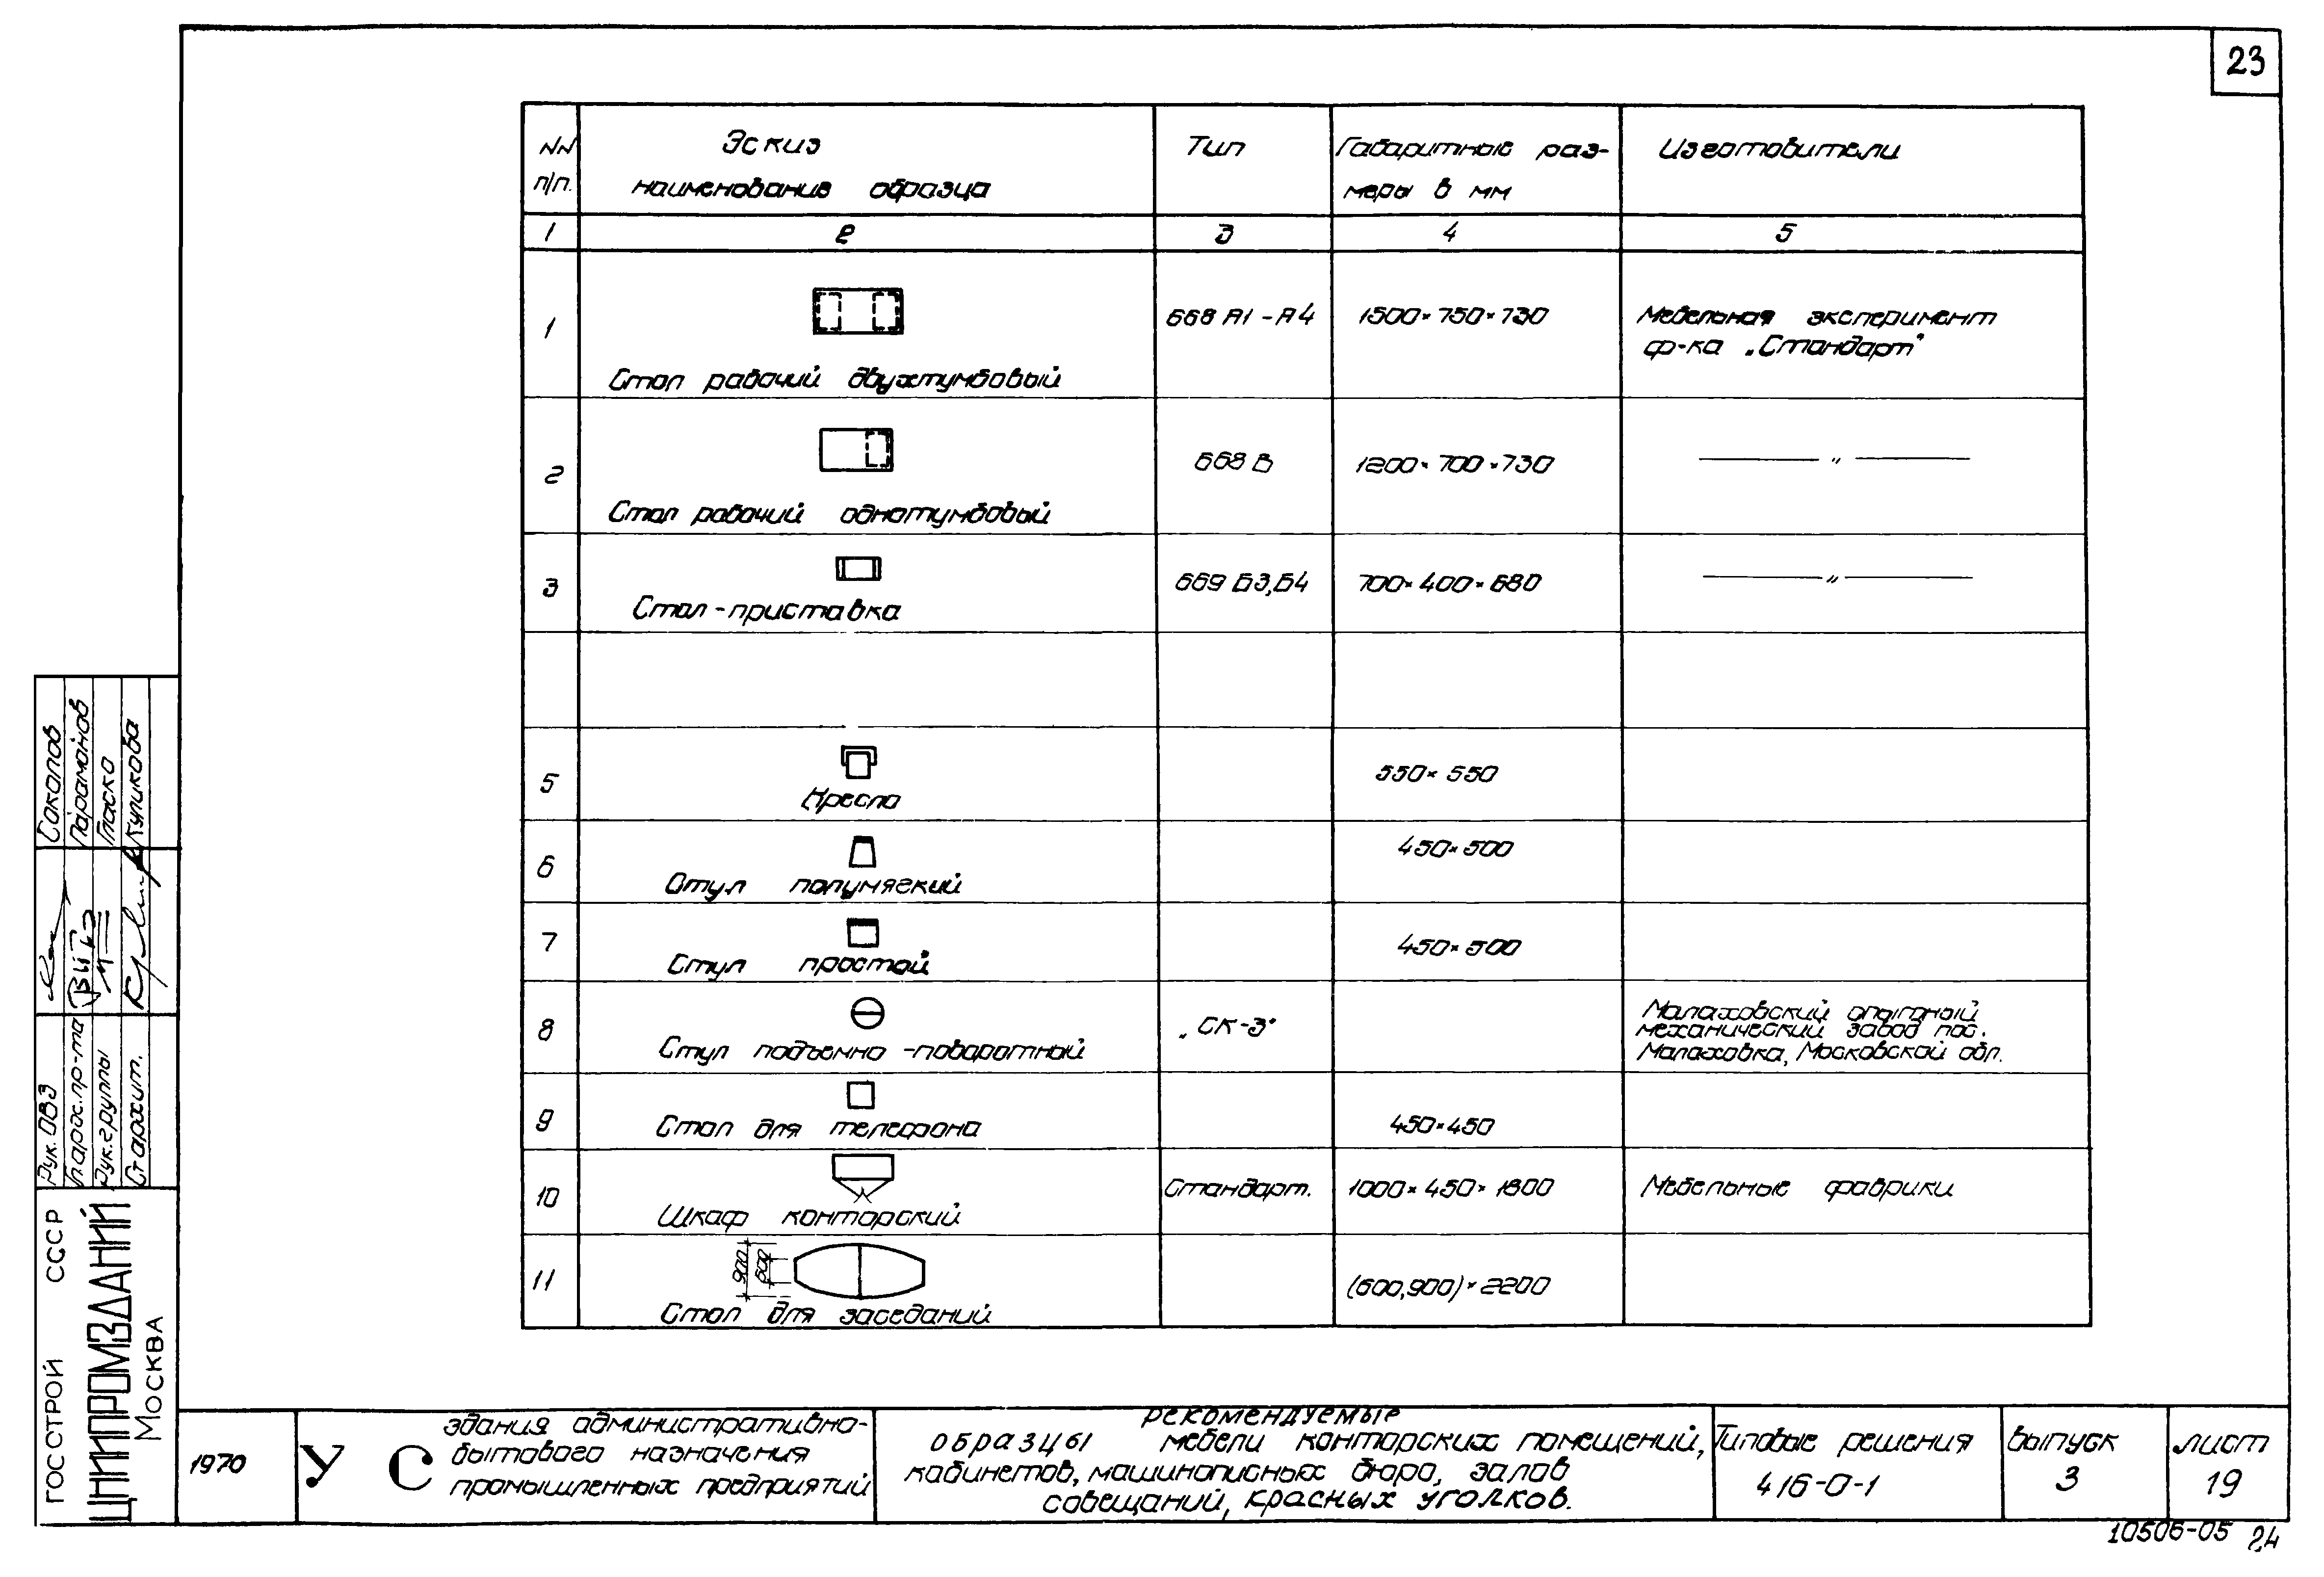 23
NN
п/п.
Эскиз
наименование образца
Тип
Габаритные раз-
меры в мм
Изготовители
1 2 3 4 5
1
Стол рабочий двухтумбовый
668 А1-А4
1500×750×730
Мебельная эксперимент
ф-ка „Стандарт"
2
Стол рабочий однотумбовый
668 В
1200×700×730
— " —
3
Стол-приставка
669 Б3,Б4
700×400×680
— " —
5
Кресло
550×550
6
Стул полумягкий
450×500
7
Стул простой
450×500
8
Стул подъемно-поворотный
„СК-3"
Малаховский опытный
механический завод пос.
Малаховка, Московской обл.
9
Стол для телефона
450×450
10
Шкаф конторский
Стандарт.
1000×450×1800
Мебельные фабрики
11
900
600
Стол для заседаний
(600,900)×2200
Соколов
Парамонов
Гласко
Куликова
Рук. ОВЭ
Гл.арх.пр-та
Рук.группы
Ст.архит.
ГОССТРОЙ СССР
ЦНИИПРОМЗДАНИЙ
МОСКВА
1970
УС
здания административно-
бытового назначения
промышленных предприятий
рекомендуемые
образцы мебели конторских помещений,
кабинетов, машинописных бюро, залов
совещаний, красных уголков.
Типовые решения
416-0-1
выпуск
3
лист
19
10506-05 24